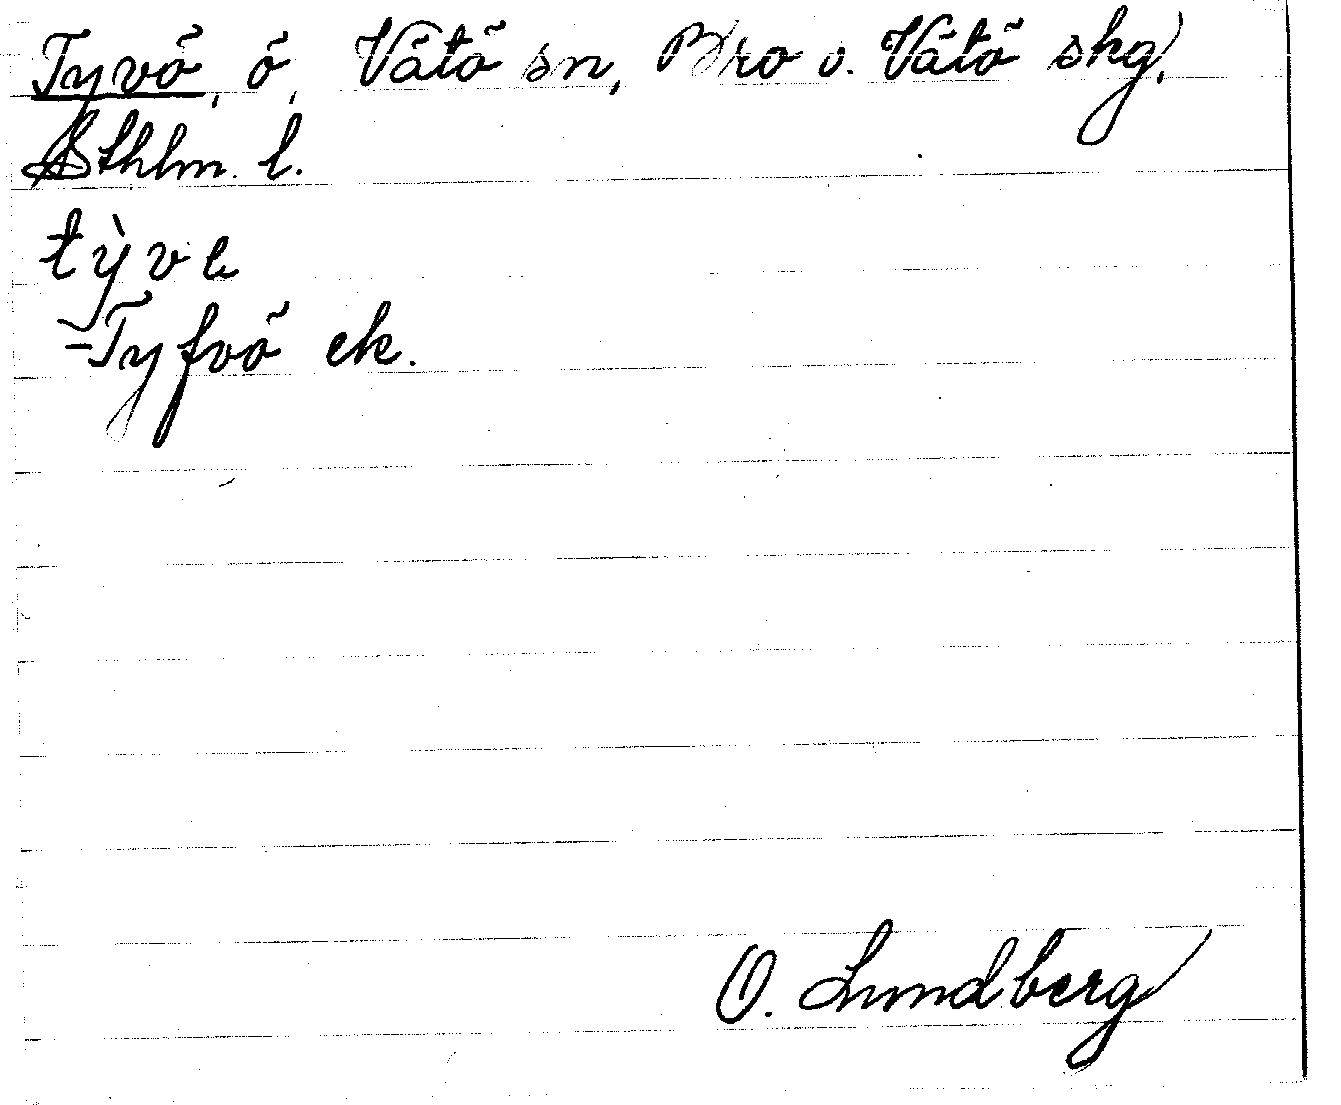 Tyvö, ö, Vätö sn, Bro o. Vätö skg,
Sthlm. l.
tỳvɩ
- Tyfvö ek.
O. Lundberg